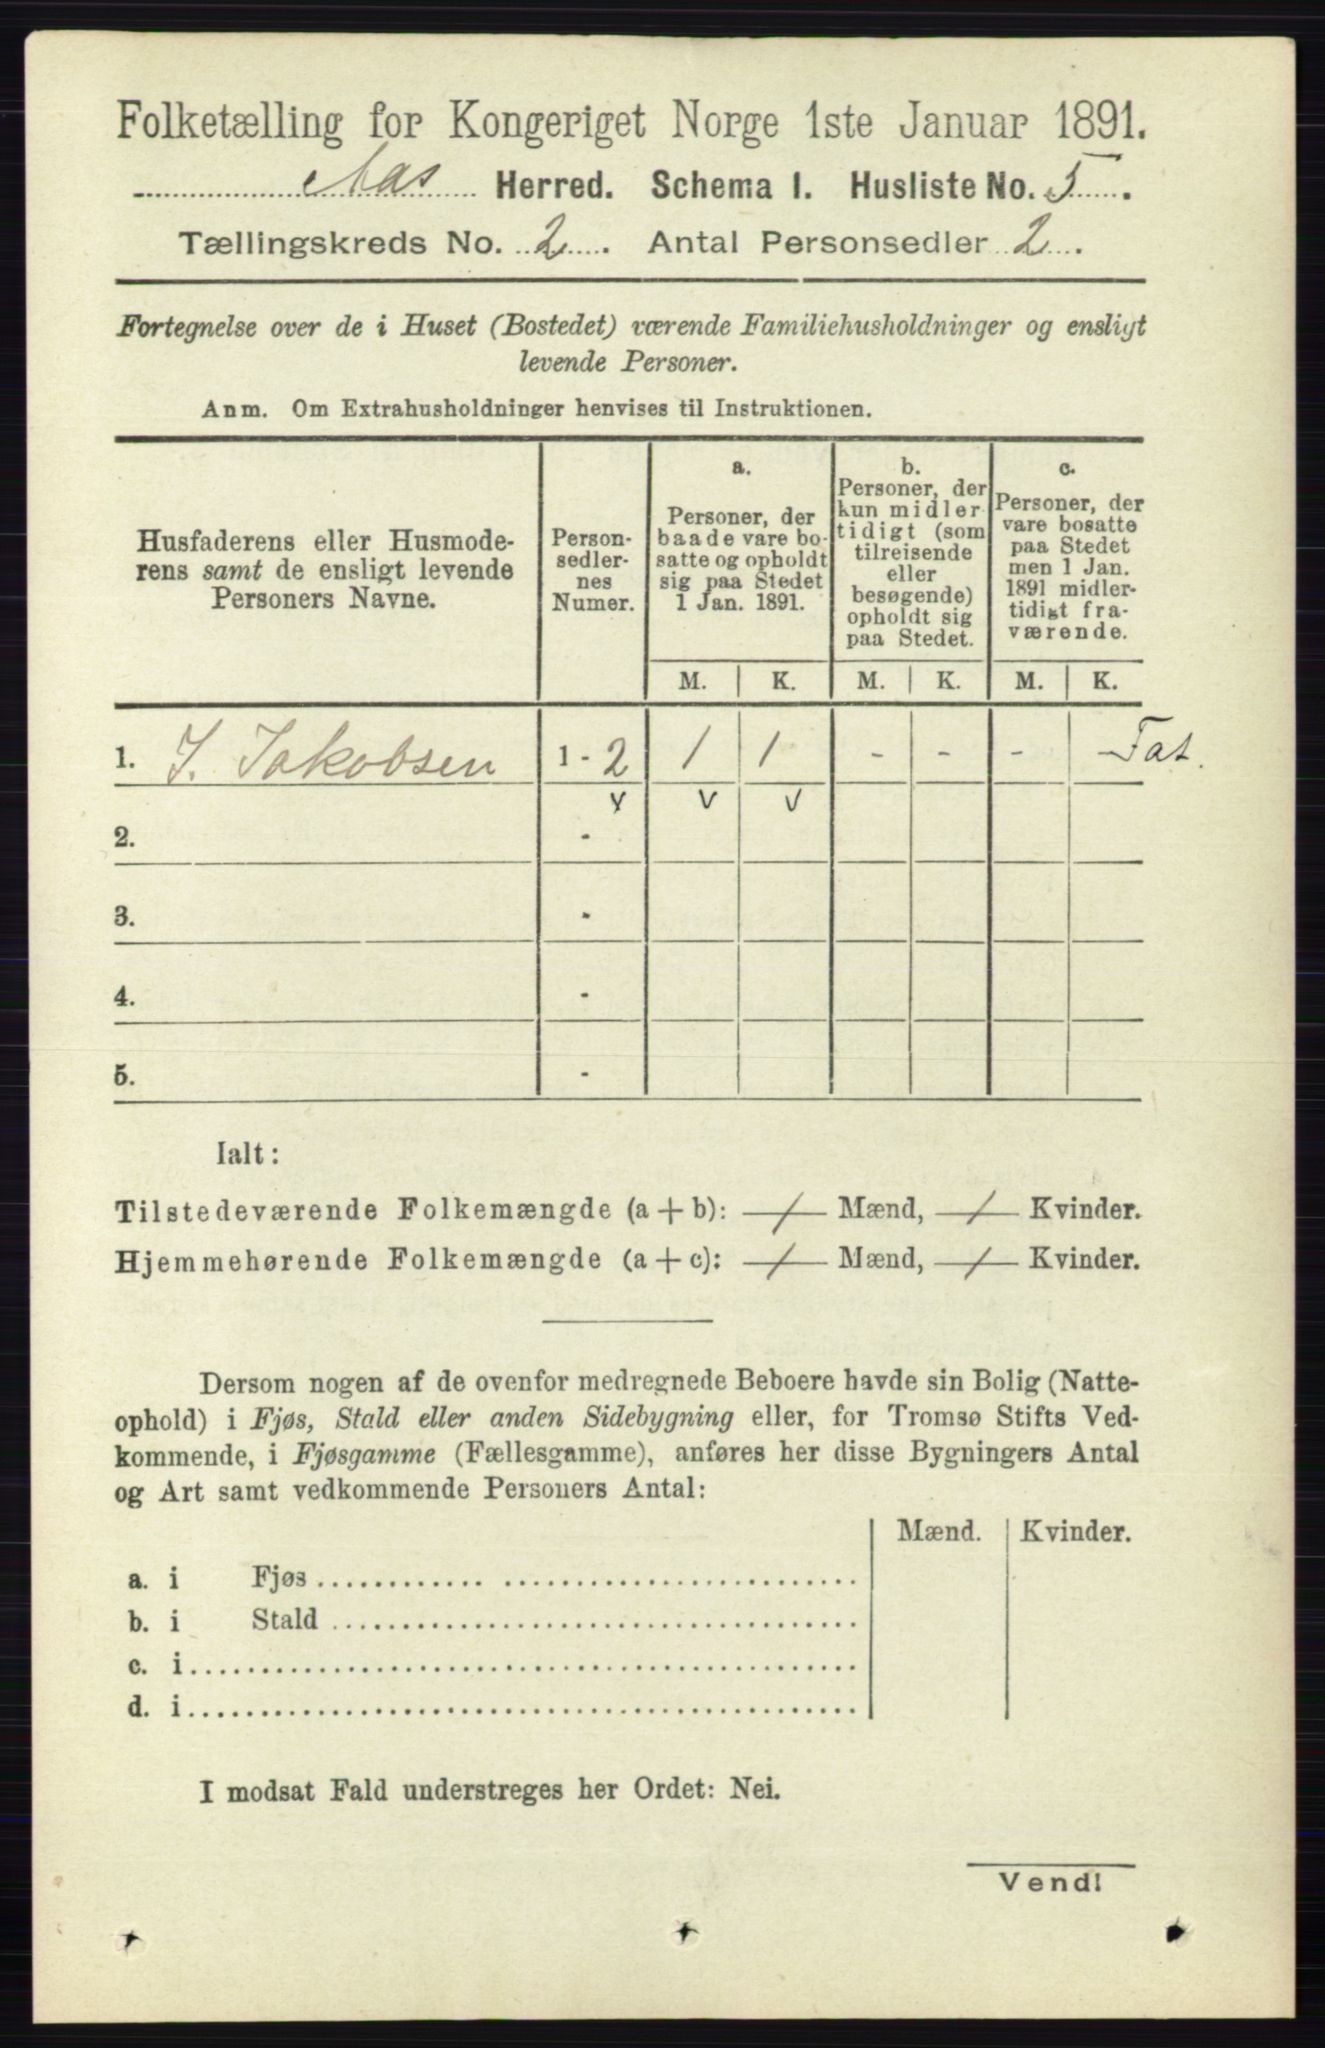 Folketælling for Kongeriget Norge 1ste Januar 1891.
Aas Herred. Schema 1. Husliste No. 5.
Tællingskreds No. 2. Antal Personsedler 2.
Fortegnelse over de i Huset (Bostedet) værende Familiehusholdninger og ensligt
levende Personer.
Anm. Om Extrahusholdninger henvises til Instruktionen.
Husfaderens eller Husmode-
rens samt de ensligt levende
Personers Navne.
Person-
sedler-
nes
Numer.
a.
Personer, der
baade vare bo-
satte og opholdt
sig paa Stedet
1 Jan. 1891.
b.
Personer, der
kun midler
tidigt (som
tilreisende
eller
besøgende)
opholdt sig
paa Stedet.
c.
Personer, der
vare bosatte
paa Stedet
men 1 Jan.
1891 midler-
tidigt fra-
værende.
M. K. M. K. M. K.
1. J. Jakobsen 1 - 2 1 1 - - - - Fat.
v v v
2. -
3. -
4. -
5. -
Ialt:
Tilstedeværende Folkemængde (a + b): 1 Mænd, 1 Kvinder.
Hjemmehørende Folkemængde (a + c): 1 Mænd, 1 Kvinder.
Dersom nogen af de ovenfor medregnede Beboere havde sin Bolig (Natte-
ophold) i Fjøs, Stald eller anden Sidebygning eller, for Tromsø Stifts Ved-
kommende, i Fjøsgamme (Fællesgamme), anføres her disse Bygningers Antal
og Art samt vedkommende Personers Antal:
Mænd. Kvinder.
a. i Fjøs
b. i Stald
c. i
d. i
I modsat Fald understreges her Ordet: Nei.
Vend!